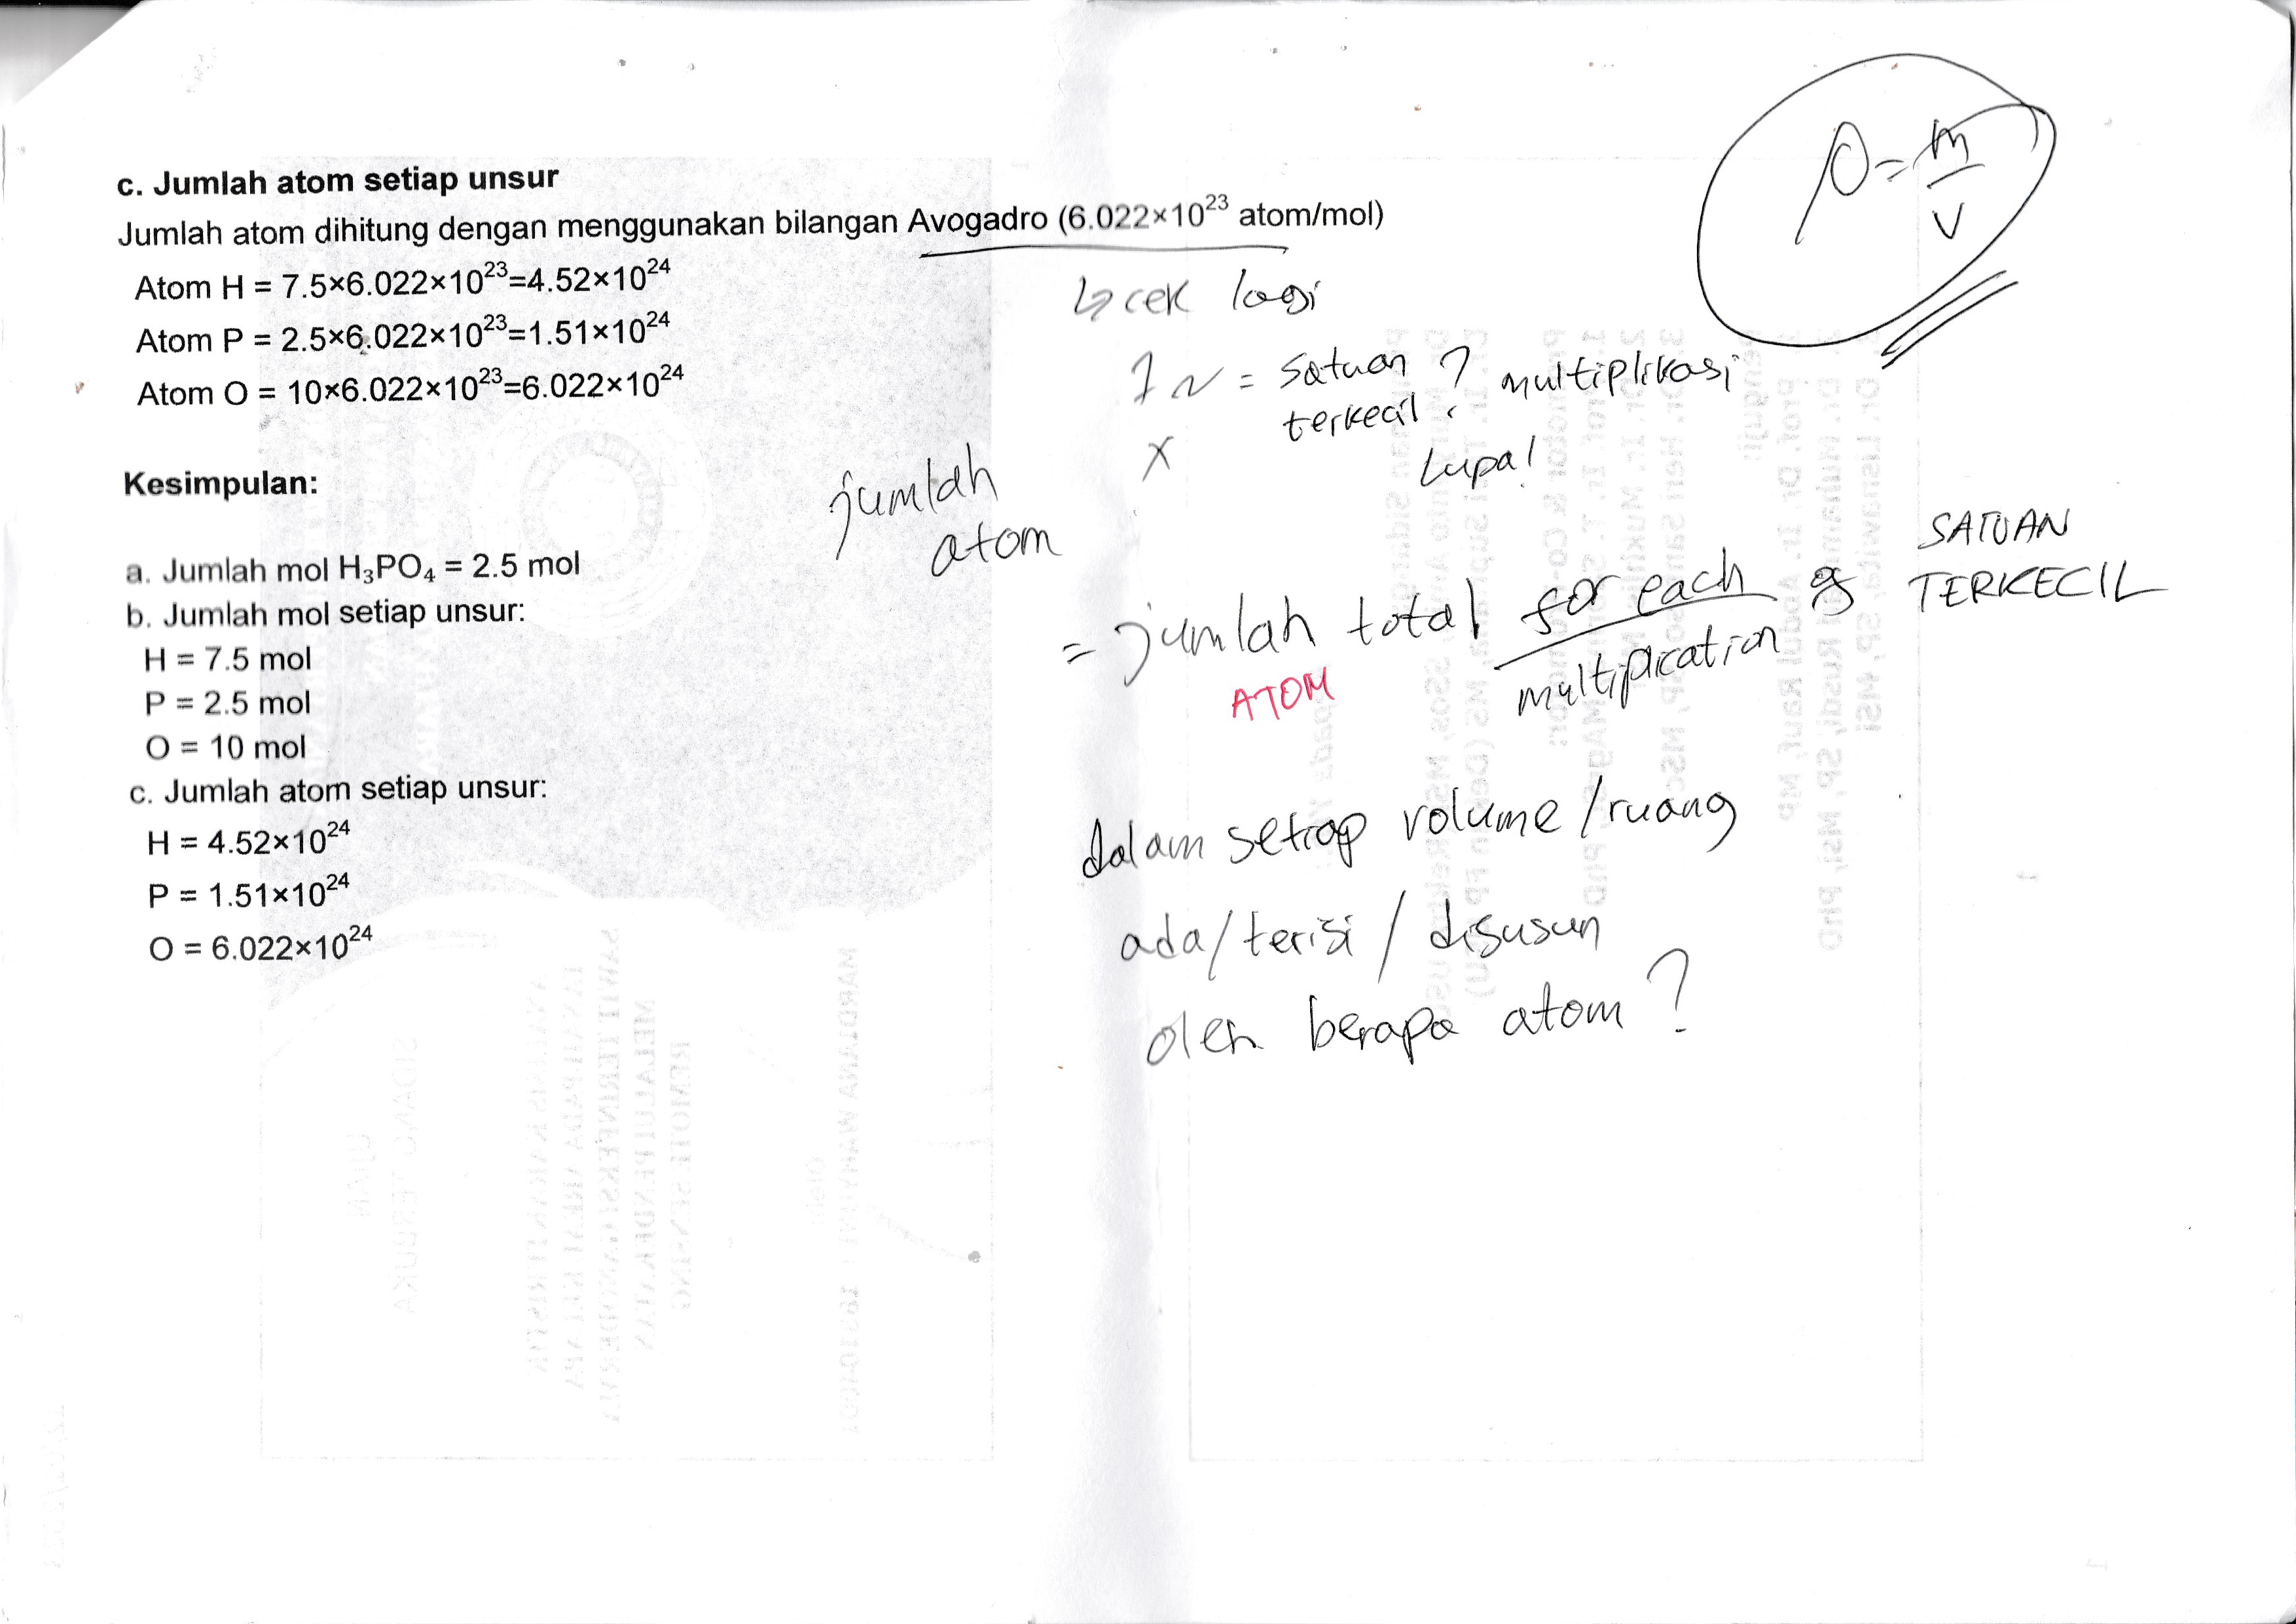 c. Jumlah atom setiap unsur
Jumlah atom dihitung dengan menggunakan bilangan Avogadro (6.022×10²³ atom/mol)
Atom H = 7.5×6.022×10²³=4.52×10²⁴
Atom P = 2.5×6.022×10²³=1.51×10²⁴
Atom O = 10×6.022×10²³=6.022×10²⁴
Kesimpulan:
a. Jumlah mol H₃PO₄ = 2.5 mol
b. Jumlah mol setiap unsur:
H = 7.5 mol
P = 2.5 mol
O = 10 mol
c. Jumlah atom setiap unsur:
H = 4.52×10²⁴
P = 1.51×10²⁴
O = 6.022×10²⁴
ρ = m/v
↳ cek lagi
1 N = satuan ? multiplikasi
terkecil
Lupa!
jumlah
atom
X
= jumlah total for each
ATOM
multiplication
SATUAN
TERKECIL
dalam setiap volume / ruang
ada / terisi / disusun
oleh berapa atom ?